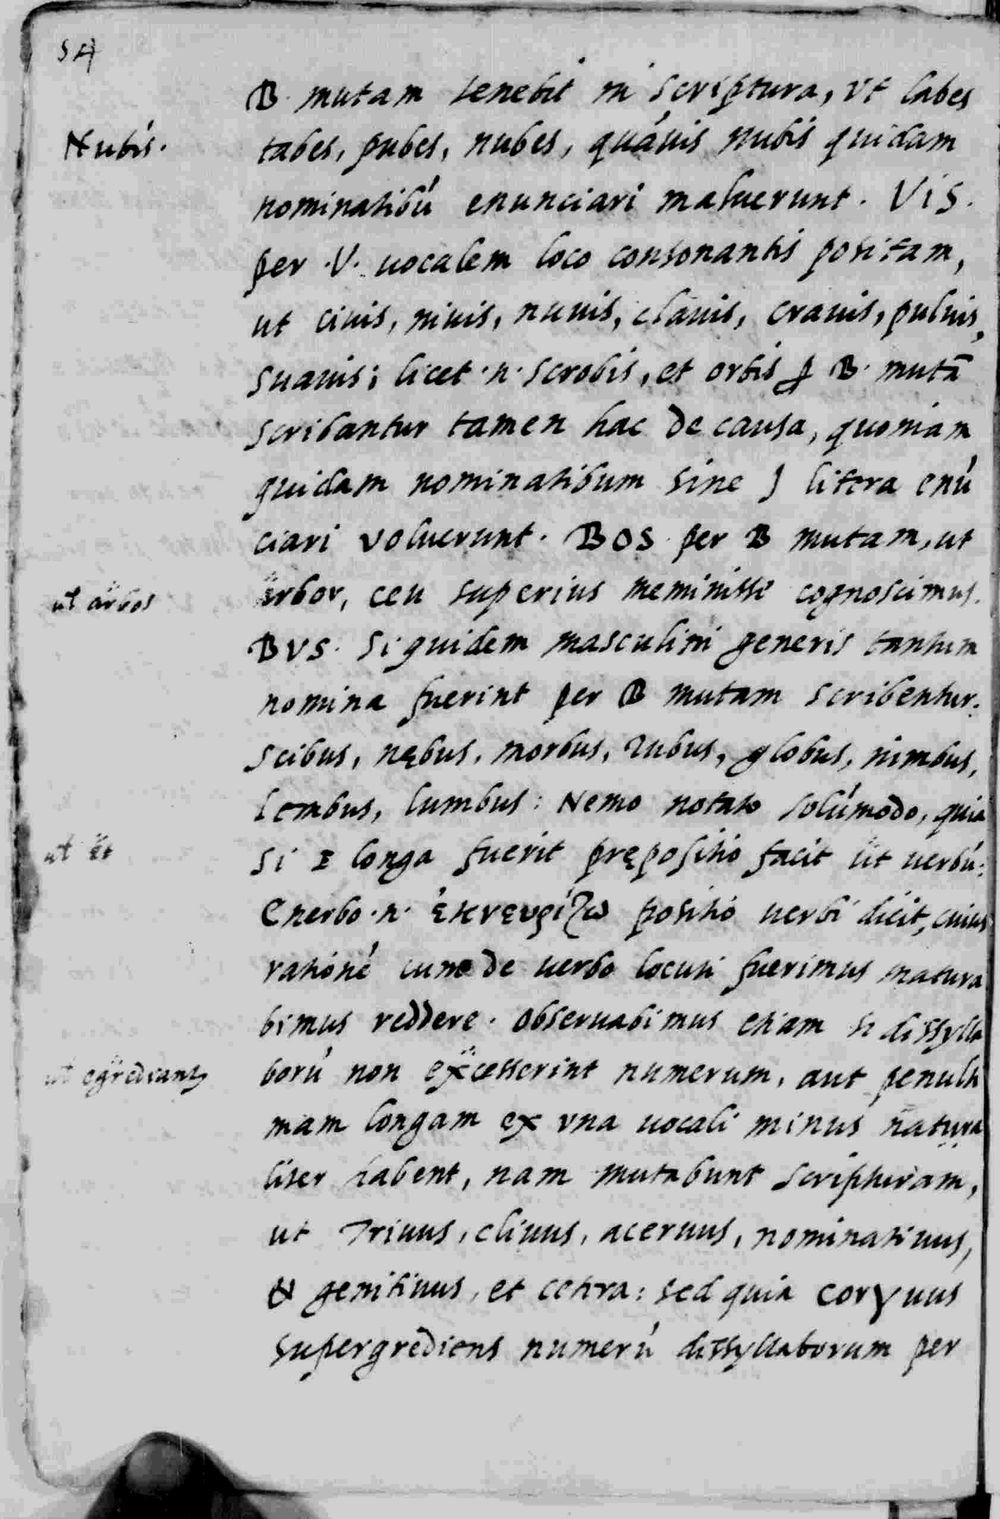 54
B mutam tenebit in scriptura, vt labes
Nubis.
tabes, pubes, nubes, quáuis nubis quidam
nominatibú enunciari maluerunt. VIS.
per .V. uocalem loco consonantis positam,
ut ciuis, niuis, nauis, clauis, crauis, puluis,
suauis; licet .n. scrobis, et orbis ꝑ B. mutā
scribantur tamen hac de causa, quoniam
quidam nominatibum sine J litera enú
ciari voluerunt. BOS per B mutam, ut
ut arbos
arbor, ceu superius meminisse cognoscimus.
BVS. Siquidem masculini generis tantum
nomina fuerint per B mutam scribentur:
scibus, nębus, morbus, rubus, globus, nimbus,
lembus, lumbus: Nemo notato solúmodo, quia
ut Et
si E longa fuerit prępositio facit ut uerbú:
Enerbo .n. ἐκνευρίζω positio uerbi dicit, cuius
rationé cum de uerbo locuti fuerimus matura
bimus reddere. obseruabimus etiam si dissylla
ut egrediant
ború non excesserint numerum, aut penulti
mam longam ex vna uocali minus natura
liter habent, nam mutabunt scripturam,
ut Triuus, cliuus, aceruus, nominatiuus,
& genitiuus, et cetera: sed quia coryuus
supergrediens numerú dissyllaborum per